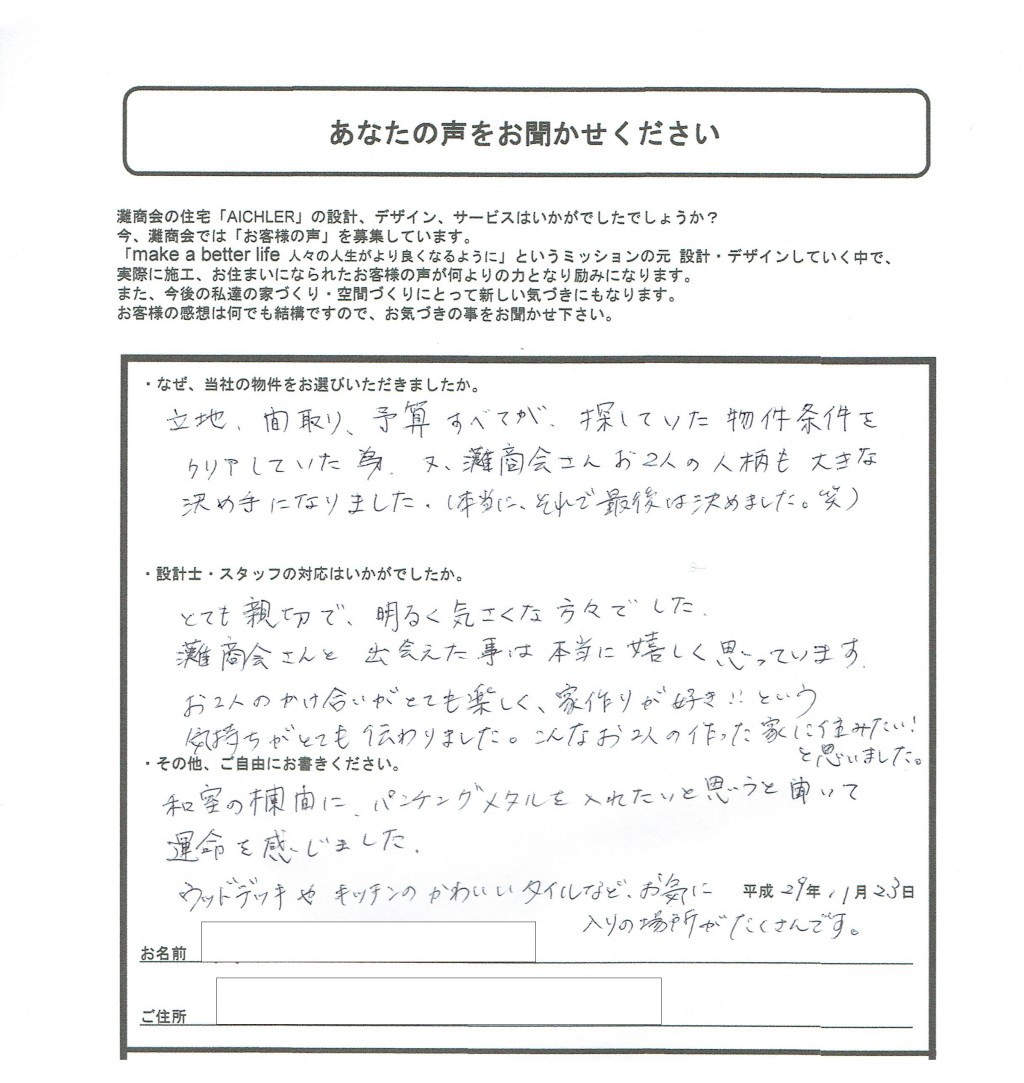 あなたの声をお聞かせください
灘商会の住宅「AICHLER」の設計、デザイン、サービスはいかがでしたでしょうか？
今、灘商会では「お客様の声」を募集しています。
「make a better life 人々の人生がより良くなるように」というミッションの元 設計・デザインしていく中で、
実際に施工、お住まいになられたお客様の声が何よりの力となり励みになります。
また、今後の私達の家づくり・空間づくりにとって新しい気づきにもなります。
お客様の感想は何でも結構ですので、お気づきの事をお聞かせ下さい。
・なぜ、当社の物件をお選びいただきましたか。
立地、間取り、予算すべてが、探していた物件条件を
クリアしていた為。又、灘商会さんお2人の人柄も大きな
決め手になりました。（本当に、それで最後は決めました。笑）
・設計士・スタッフの対応はいかがでしたか。
とても親切で、明るく気さくな方々でした。
灘商会さんと出会えた事は本当に嬉しく思っています。
お2人のかけ合いがとても楽しく、家作りが好き!!という
気持ちがとても伝わりました。こんなお2人の作った家に住みたい！
と思いました。
・その他、ご自由にお書きください。
和室の欄間に、パンチングメタルを入れたいと思うと聞いて
運命を感じました。
ウッドデッキやキッチンのかわいいタイルなど、お気に
入りの場所がたくさんです。
平成29年11月23日
お名前
ご住所